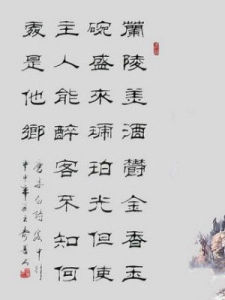 蘭陵美酒鬱金香玉
碗盛來琥珀光但使
主人能醉客不知何
處是他鄉
唐李白詩客中行